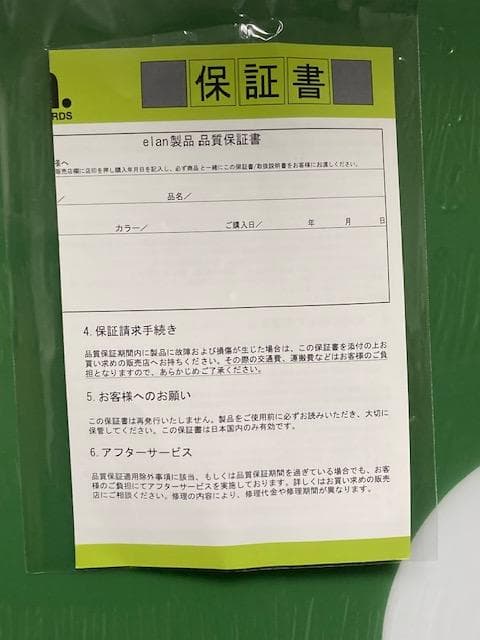 保証書
RDS
elan製品 品質保証書
様へ
販売店欄に店印を押し購入年月日を記入し、必ず商品と一緒にこの保証書/取扱説明書をお客様にお渡しください。
/ 品名/
カラー/ ご購入日/ 年 月 日
4.保証請求手続き
品質保証期間内に製品に故障および損傷が生じた場合は、この保証書を添付の上お
買い求めの販売店へお持ちください。その際の交通費、運搬費などはお客様のご負
担となりますので、あらかじめご了承ください。
5.お客様へのお願い
この保証書は再発行いたしません。製品をご使用前に必ずお読みいただき、大切に
保管してください。この保証書は日本国内のみ有効です。
6.アフターサービス
品質保証適用除外事項に該当、もしくは品質保証期間を過ぎている場合でも、お客
様のご負担にてアフターサービスを実施しております。詳しくはお買い求めの販売
店にご相談ください。修理の内容により、修理代金や修理期間が異なります。